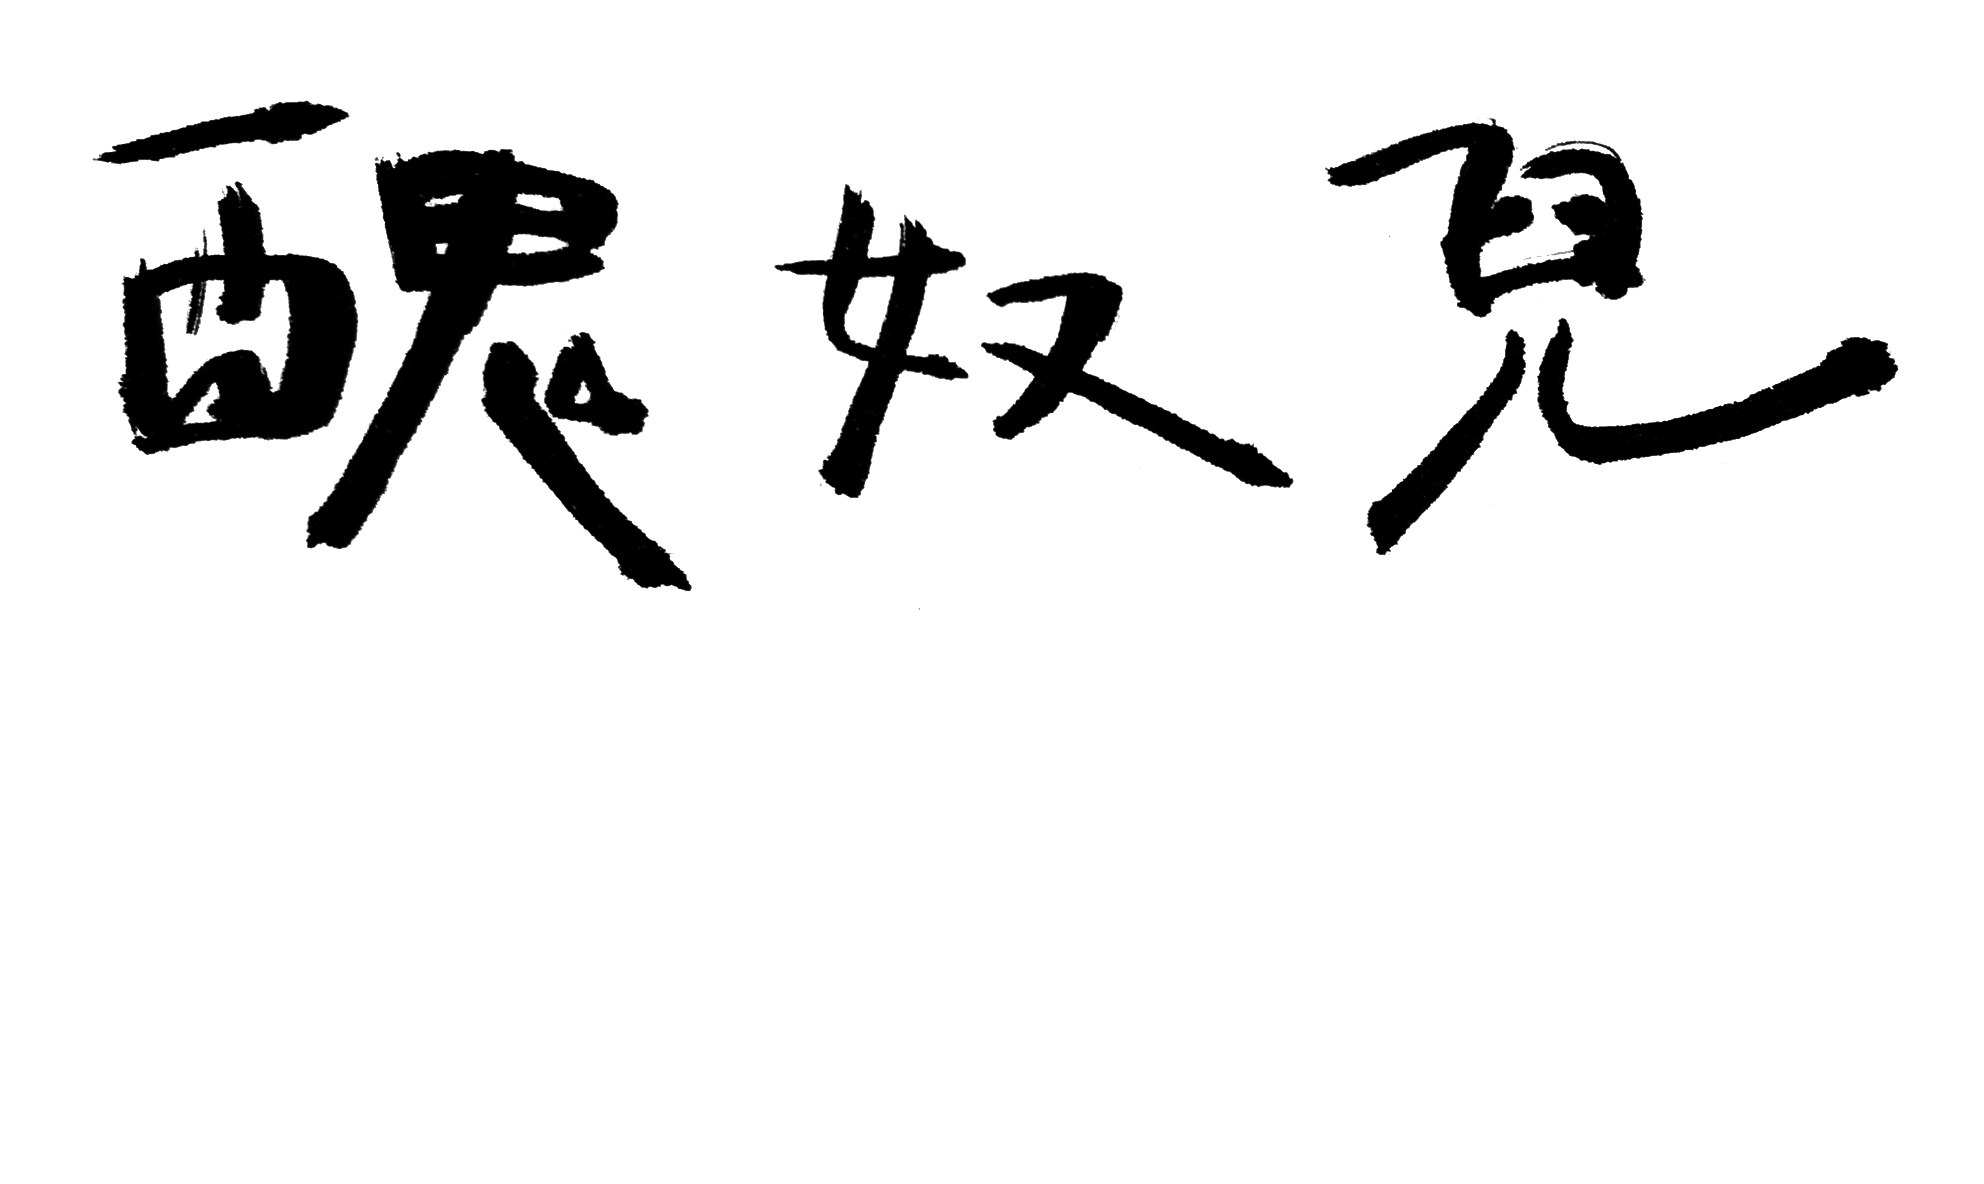 醜奴兒